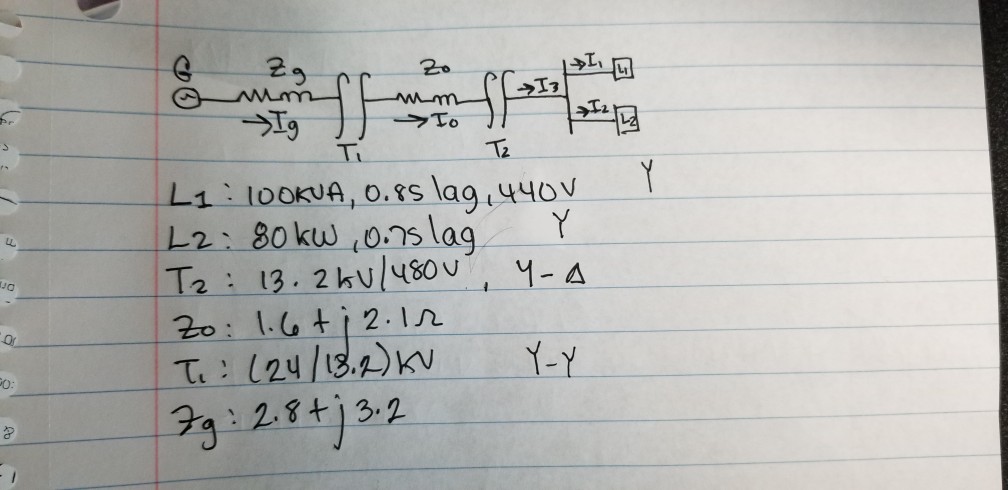 G Zg Zo →I₁ L1
→Ig T₁ →Io T₂ →I3 →I₂ L2
L1: 100KVA, 0.85 lag, 440V Y
L2: 80 kW, 0.75 lag Y
T₂: 13.2kV/480V, Y-Δ
Zo: 1.6 + j 2.1Ω
T₁: (24/13.2)kV Y-Y
Zg: 2.8 + j 3.2